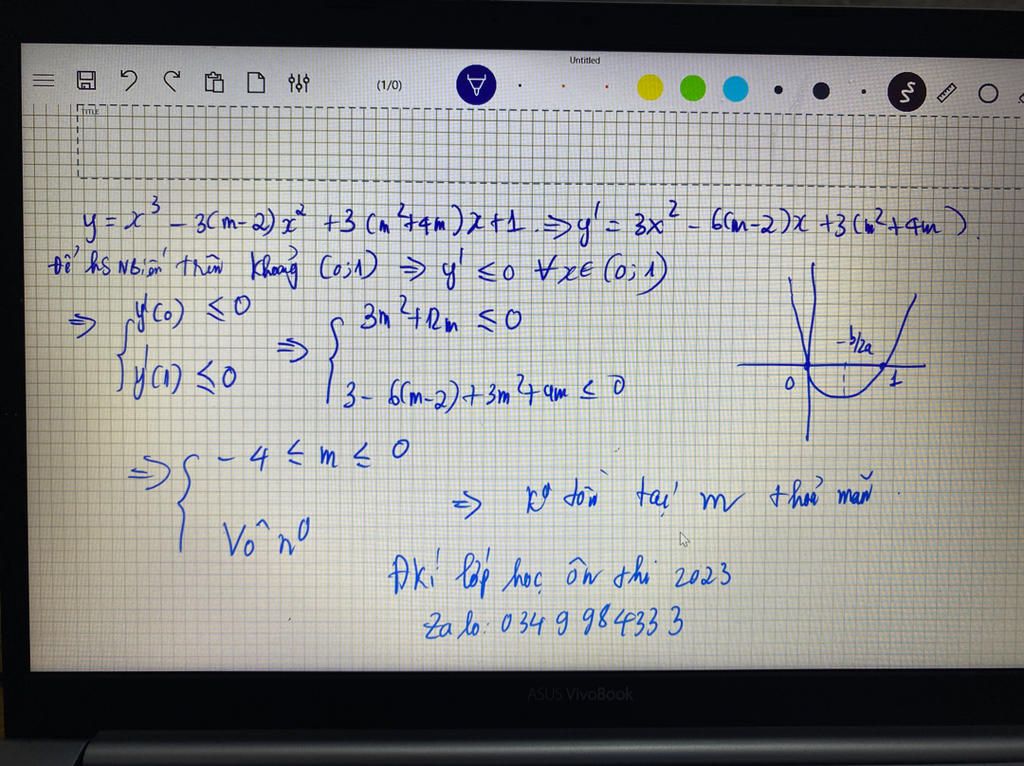 Untitled
(1/0)
TITLE
y = x³ - 3(m-2)x² + 3(m²+4m)x+1 ⇒ y' = 3x² - 6(m-2)x + 3(m²+4m).
Để hs Nbiến trên khoảng (0;1) ⇒ y' ≤ 0 ∀x∈(0;1)
⇒ { y'(0) ≤ 0 ⇒ { 3m²+12m ≤ 0
y'(1) ≤ 0 3 - 6(m-2)+3m²+4m ≤ 0
-b/2a
0 1
⇒ { -4 ≤ m ≤ 0
Vô n⁰ ⇒ K⁰ tồn tại m thoả mãn.
Đkí lớp học ôn thi 2023
Zalo: 0349984333
ASUS VivoBook